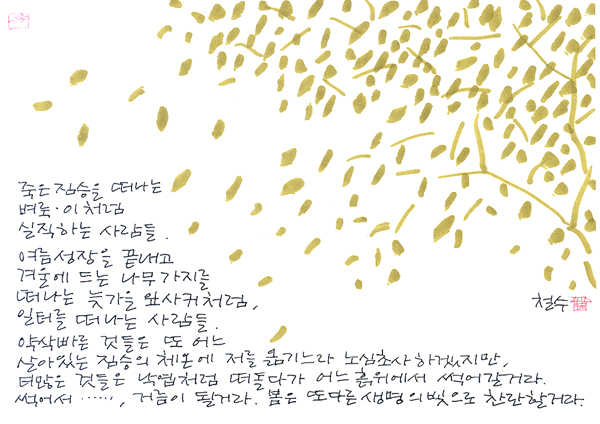 죽은 짐승을 떠나는
벼룩·이처럼
실직하는 사람들.
여름성장을 끝내고
겨울에 드는 나무가지를
떠나는 늦가을 잎사귀처럼,
일터를 떠나는 사람들.
약삭빠른 것들은 또 어느
살아있는 짐승의 체온에 저를 옮기느라 노심초사 하겠지만,
더많은 것들은 낙엽처럼 떠돌다가 어느 흙위에서 썩어갈거라.
썩어서 ……, 거름이 될거라. 봄은 또다른 생명의 빛으로 찬란할거라.
철수